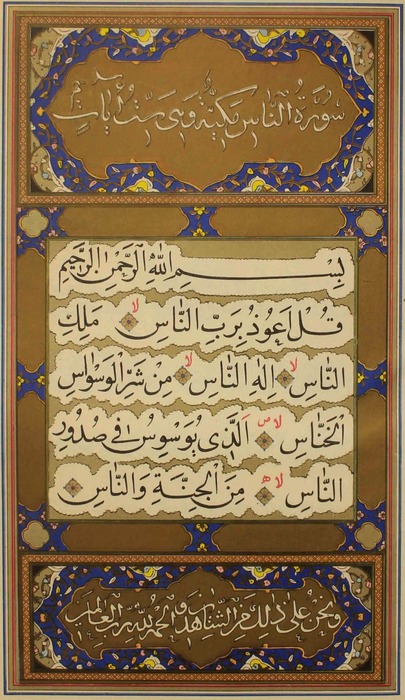 سُورَةُ النَّاسِ مَكِّيَّةٌ وَهِيَ سِتُّ آيَاتٍ
بِسْمِ اللّٰهِ الرَّحْمٰنِ الرَّحِيمِ
قُلْ اَعُوذُ بِرَبِّ النَّاسِ لا مَلِكِ
النَّاسِ لا اِلٰهِ النَّاسِ لا مِنْ شَرِّ الْوَسْوَاسِ
الْخَنَّاسِ لا ص اَلَّذِى يُوَسْوِسُ فِى صُدُورِ
النَّاسِ لا ه مِنَ الْجِنَّةِ وَالنَّاسِ
وَنَحْنُ عَلٰى ذٰلِكَ مِنَ الشَّاهِدِينَ وَالْحَمْدُ لِلّٰهِ رَبِّ الْعَالَمِينَ